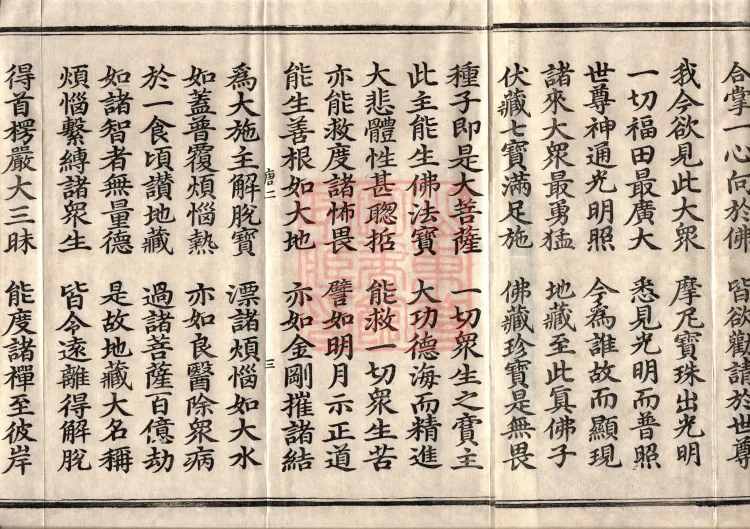 合掌一心向於佛 皆欲勸請於世尊
我今欲見此大眾 摩尼寶珠出光明
一切福田最廣大 悉見光明而普照
世尊神通光明照 今為誰故而顯現
諸來大眾最勇猛 地藏至此冥佛子
伏藏七寶滿足施 佛藏珍寶是無畏
種子即是大菩薩 一切眾生之寶主
此主能生佛法寶 大功德海而精進
大悲體性甚聰哲 能救一切眾生苦
亦能救度諸怖畏 譬如明月示正道
能生善根如大地 亦如金剛摧諸結
唐二 三
為大施主解脫寶 漂諸煩惱如大水
如蓋普覆煩惱熱 亦如良醫除眾病
於一食頃讚地藏 過諸菩薩百億劫
如諸智者無量德 是故地藏大名稱
煩惱繫縛諸眾生 皆令遠離得解脫
得首楞嚴大三昧 能度諸禪至彼岸